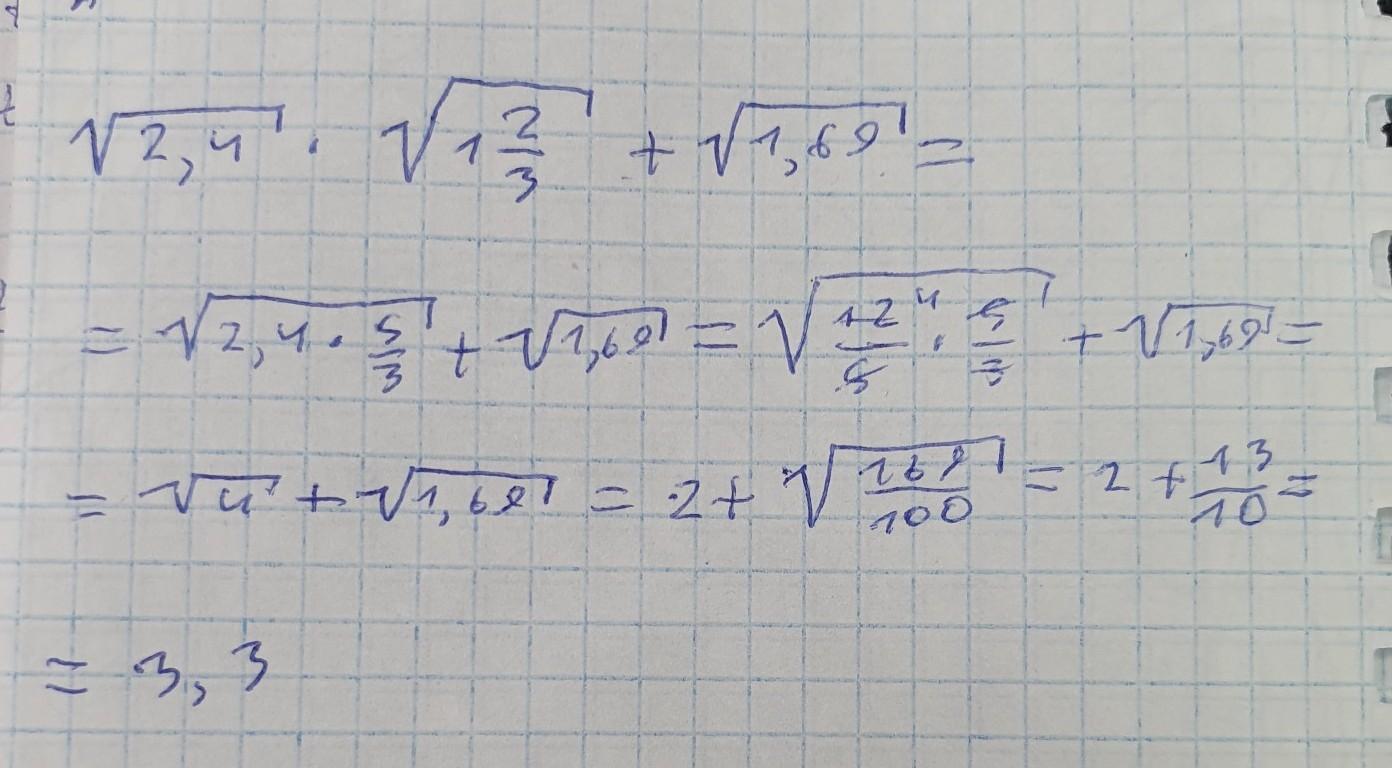 √2,4 · √1 2/3 + √1,69 =
= √2,4 · 5/3 + √1,69 = √12/5 ⁴ · 5/3 + √1,69 =
= √4 + √1,69 = 2 + √169/100 = 2 + 13/10 =
= 3,3